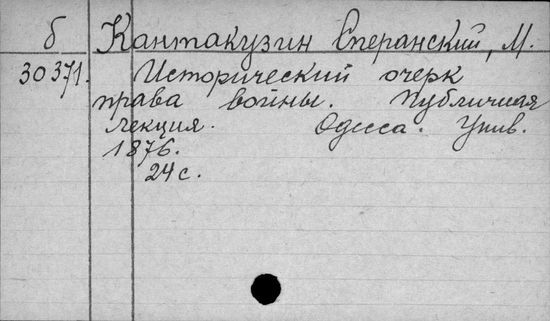 б Кантакузин Сперанский, М.
30371. Исторический очерк
права войны. Публичная
лекция. Одесса. Унив.
1876.
24 с.